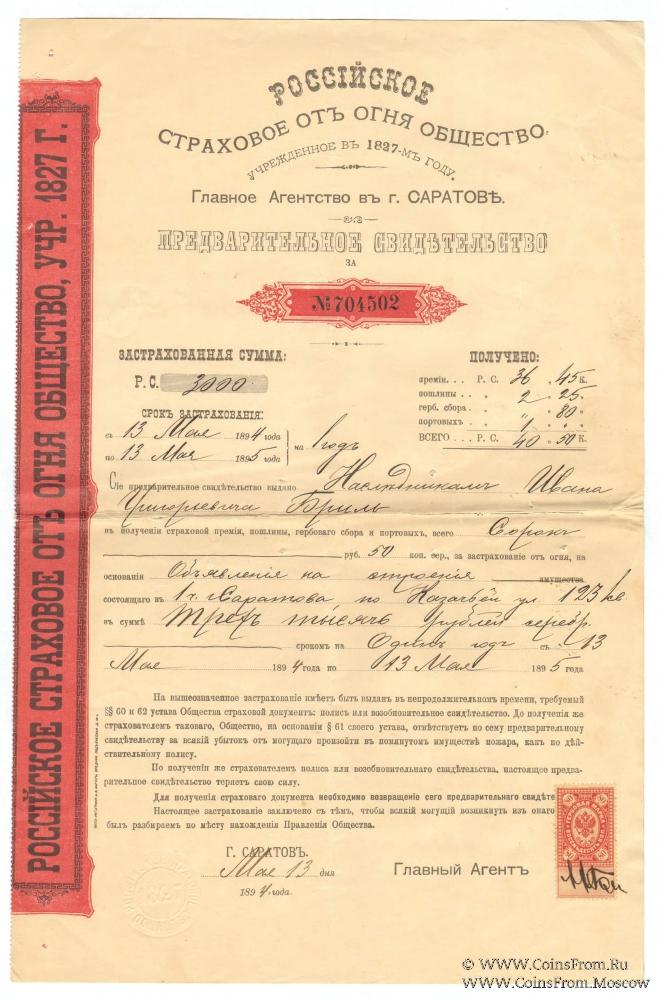 РОССІЙСКОЕ СТРАХОВОЕ ОТЪ ОГНЯ ОБЩЕСТВО, УЧР. 1827 Г.
РОССІЙСКОЕ
СТРАХОВОЕ ОТЪ ОГНЯ ОБЩЕСТВО,
УЧРЕЖДЕННОЕ ВЪ 1827-МЪ ГОДУ.
Главное Агентство въ г. САРАТОВѢ.
ПРЕДВАРИТЕЛЬНОЕ СВИДѢТЕЛЬСТВО
ЗА
№ 704502
ЗАСТРАХОВАННАЯ СУММА:
Р. С. 3000
СРОКЪ ЗАСТРАХОВАНІЯ:
съ 13 Мая 1894 года
по 13 Мая 1895 года
на 1 годъ
ПОЛУЧЕНО:
преміи... Р. С. 36 „ 45 К.
пошлины.. „ 2 „ 25 „
герб. сбора. „ „ „ 80 „
портовыхъ. „ 1 „ „
ВСЕГО .. Р. С. 40 „ 50 К.
Сіе предварительное свидѣтельство выдано Наслѣдникамъ Ивана
Григорьевича Бриль
въ полученіи страховой преміи, пошлины, гербоваго сбора и портовыхъ, всего Сорокъ
руб. 50 коп. сер., за застрахованіе отъ огня, на
основаніи Объявленія на строенія имущества
состоящаго въ 1 ч. г. Саратова, по Казачьей ул. 123 кв.
въ суммѣ Трехъ тысячъ рублей серебр.
срокомъ на Одинъ годъ съ 13
Мая 1894 года по 13 Мая 1895 года
На вышеозначенное застрахованіе имѣетъ быть выданъ въ непродолжительномъ времени, требуемый
§§ 60 и 62 устава Общества страховой документъ: полисъ или возобновительное свидѣтельство. До полученія же
страхователемъ таковаго, Общество, на основаніи § 61 своего устава, отвѣтствуетъ по сему предварительному
свидѣтельству за всякій убытокъ отъ могущаго произойти въ помянутомъ имуществѣ пожара, какъ по дѣй-
ствительному полису.
По полученіи же страхователемъ полиса или возобновительнаго свидѣтельства, настоящее предва-
рительное свидѣтельство теряетъ свою силу.
Для полученія страховаго документа необходимо возвращеніе сего предварительнаго свидѣте
Настоящее застрахованіе заключено съ тѣмъ, чтобы всякій могущій возникнуть изъ онаго
былъ разбираемъ по мѣсту нахожденія Правленія Общества.
Г. САРАТОВЪ.
Мая 13 дня
1894 года.
Главный Агентъ
@ www.CoinsFrom.Ru
www.CoinsFrom.Moscow